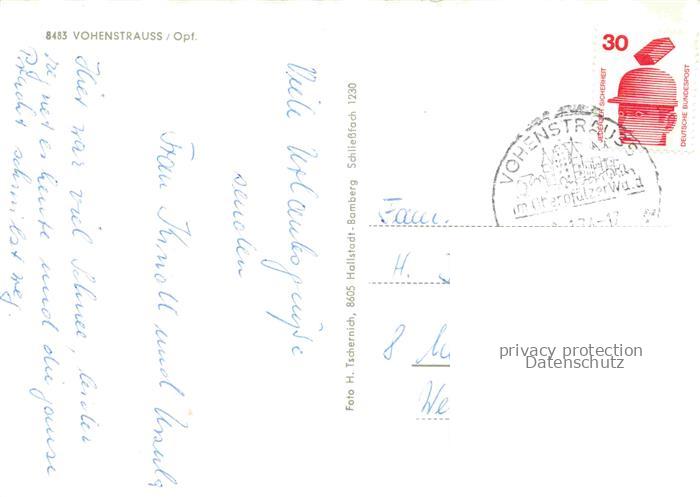 8483 VOHENSTRAUSS / Opf.
Viele Urlaubsgrüße
senden
Frau Knoll und Ursula
Hier war viel Schnee, leider
regnet es heute und die ganze
Pracht schmilzt weg.
Foto H. Tschernich, 8605 Hallstadt-Bamberg Schließfach 1230
30
JEDERZEIT SICHERHEIT
DEUTSCHE BUNDESPOST
VOHENSTRAUSS
im Oberpfälzer Wald
Fam.
H.
8
We
privacy protection
Datenschutz